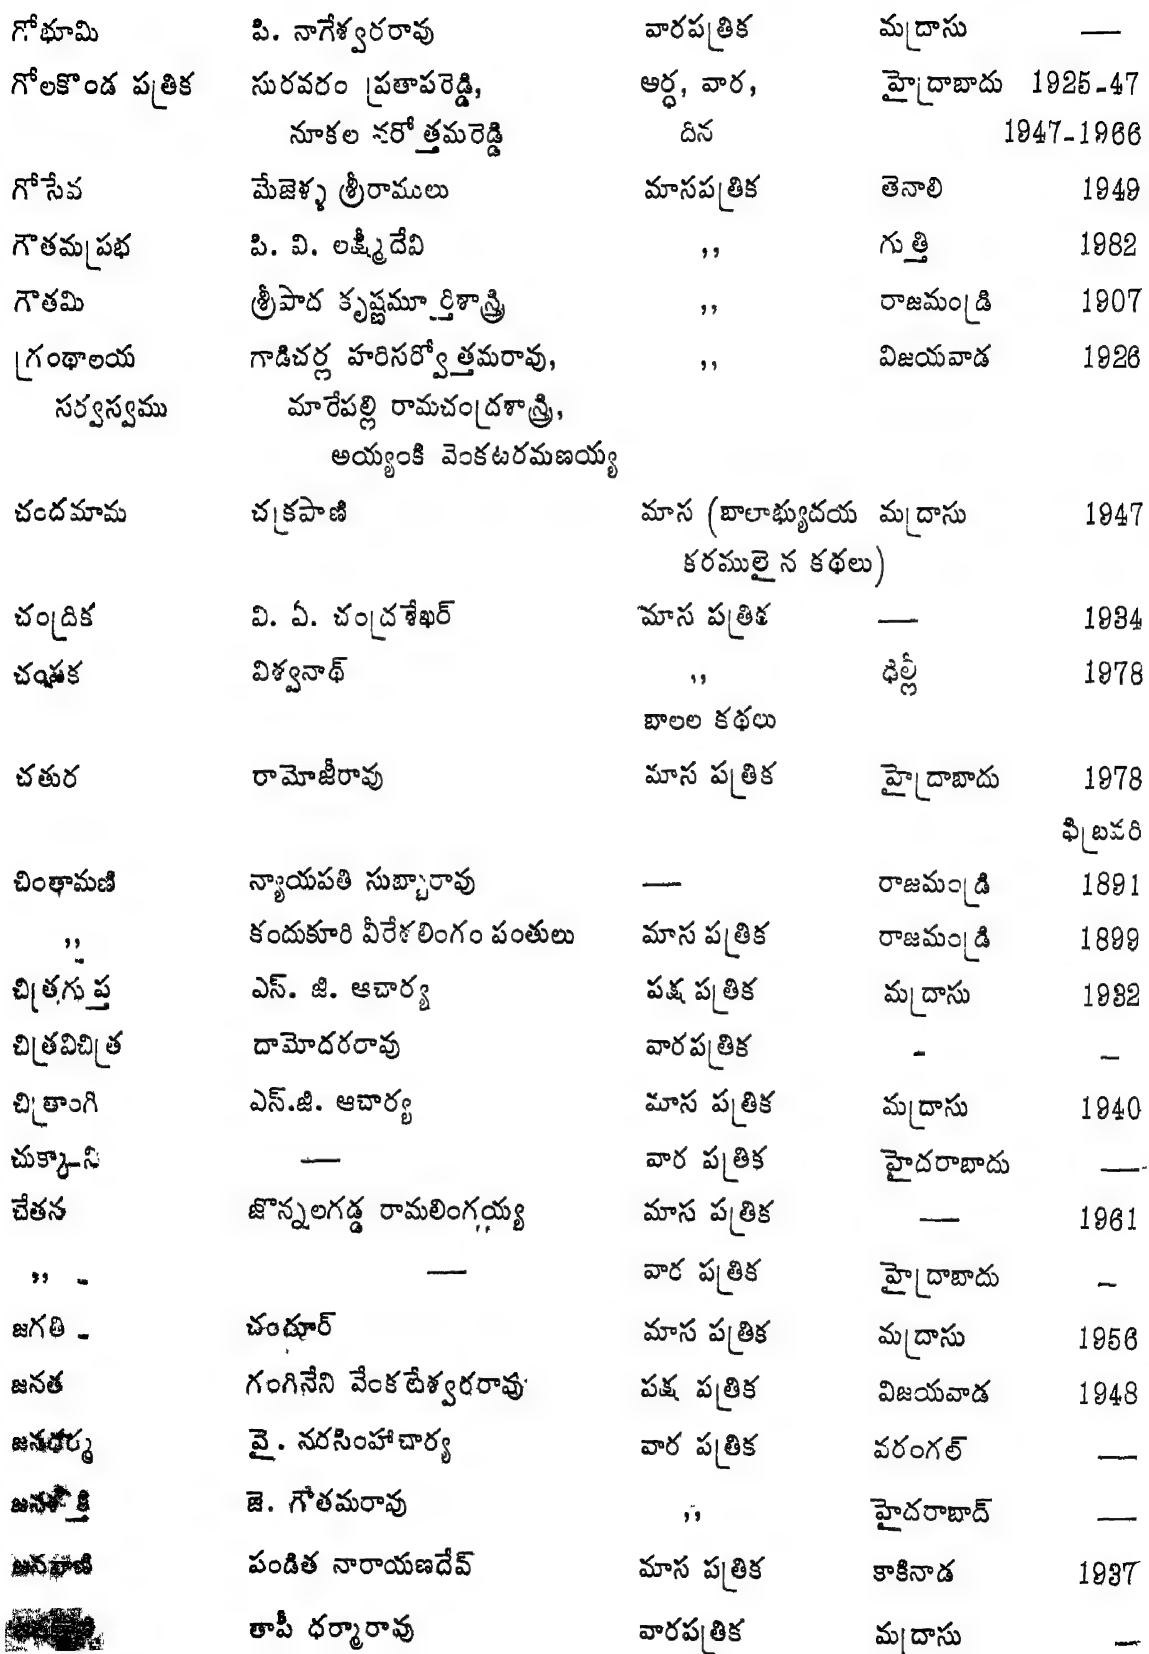 గోభూమి పి. నాగేశ్వరరావు వారపత్రిక మద్రాసు —
గోలకొండ పత్రిక సురవరం ప్రతాపరెడ్డి, ఆర్ధ, వార, హైద్రాబాదు 1925-47
నూకల నరోత్తమరెడ్డి దిన 1947-1966
గోసేవ మేజెళ్ళు శ్రీరాములు మాసపత్రిక తెనాలి 1949
గౌతమప్రభ పి. వి. లక్ష్మీదేవి ,, గుత్తి 1982
గౌతమి శ్రీపాద కృష్ణమూర్తిశాస్త్రి ,, రాజమండ్రి 1907
గ్రంథాలయ గాడిచర్ల హరిసర్వోత్తమరావు, ,, విజయవాడ 1926
సర్వస్వము మారేపల్లి రామచంద్రశాస్త్రి,
అయ్యంకి వెంకటరమణయ్య
చందమామ చక్రపాణి మాస (బాలాభ్యుదయ మద్రాసు 1947
కరములైన కథలు)
చంద్రిక వి. ఏ. చంద్రశేఖర్ మాస పత్రిక — 1934
చంపక విశ్వనాథ్ ,, ఢిల్లీ 1978
బాలల కథలు
చతుర రామోజీరావు మాస పత్రిక హైద్రాబాదు 1978
ఫిబ్రవరి
చింతామణి న్యాయపతి సుబ్బారావు — రాజమండ్రి 1891
,, కందుకూరి వీరేశలింగం పంతులు మాస పత్రిక రాజమండ్రి 1899
చిత్రగుప్త ఎస్. జి. ఆచార్య పక్ష పత్రిక మద్రాసు 1932
చిత్రవిచిత్ర దామోదరరావు వారపత్రిక - —
చిత్రాంగి ఎస్.జి. ఆచార్య మాస పత్రిక మద్రాసు 1940
చుక్కాని — వార పత్రిక హైదరాబాదు —
చేతన జొన్నలగడ్డ రామలింగయ్య మాస పత్రిక — 1961
,, - — వార పత్రిక హైద్రాబాదు —
జగతి - చందూర్ మాస పత్రిక మద్రాసు 1956
జనత గంగినేని వేంకటేశ్వరరావు పక్ష పత్రిక విజయవాడ 1948
జనధర్మ వై. నరసింహాచార్య వార పత్రిక వరంగల్ —
జనశక్తి జె. గౌతమరావు ,, హైదరాబాద్ —
జనవాణి పండిత నారాయణదేవ్ మాస పత్రిక కాకినాడ 1937
తాపీ ధర్మారావు వారపత్రిక మద్రాసు —